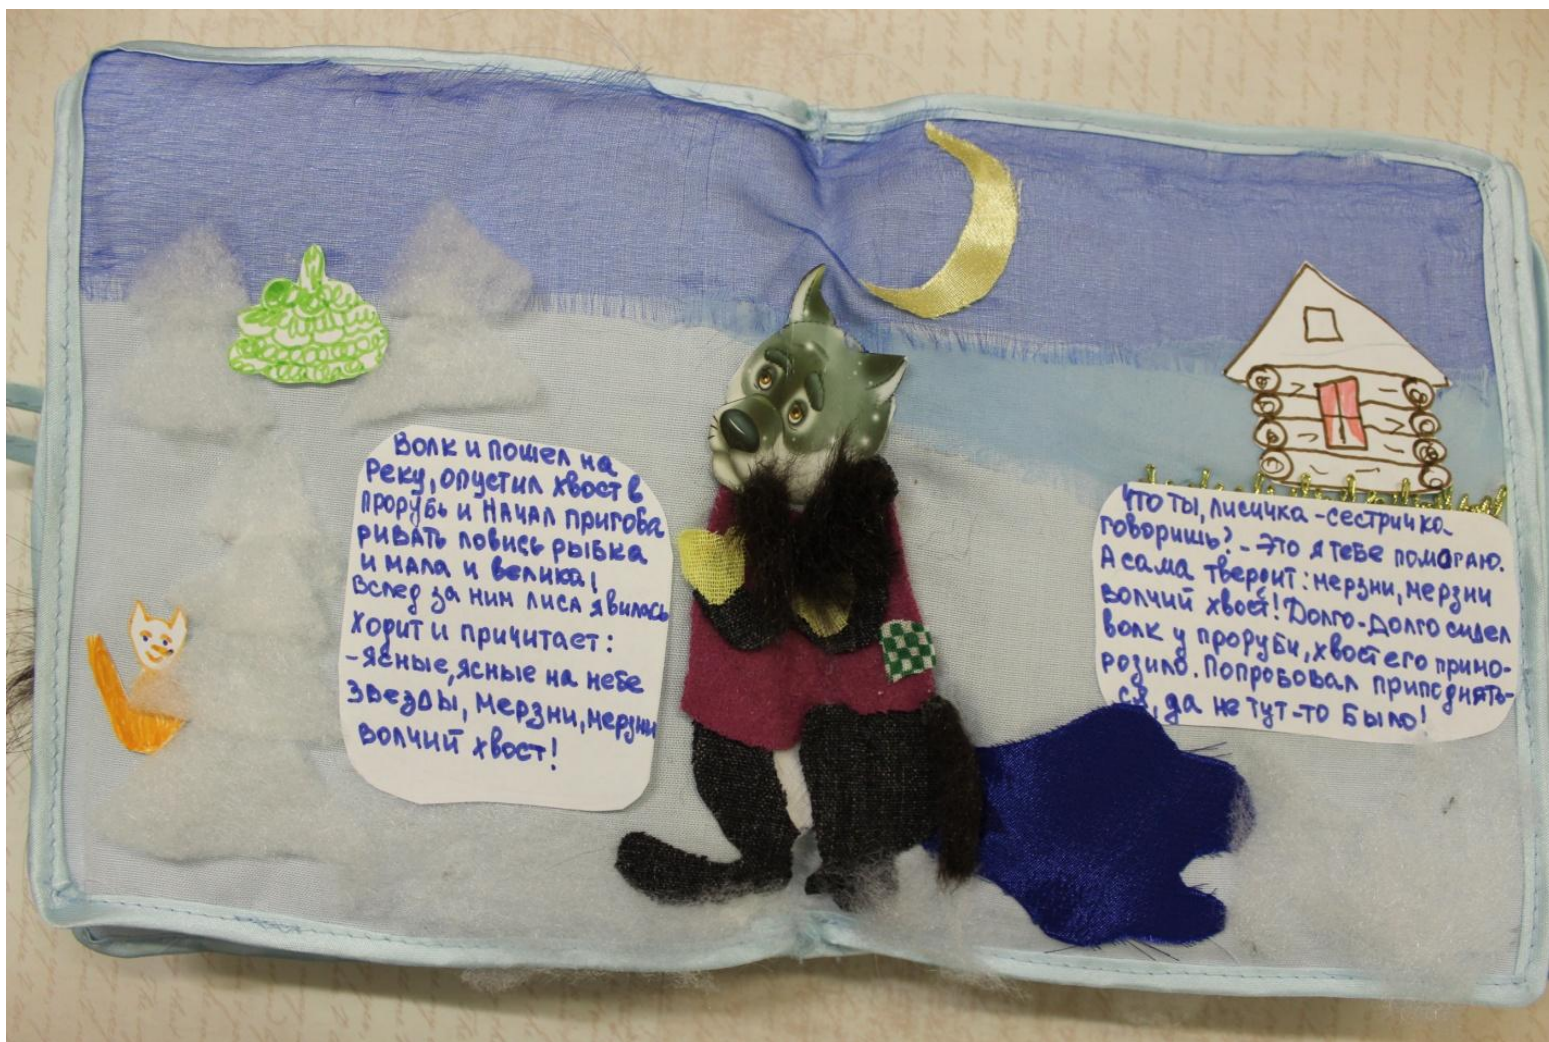 Волк и пошел на
реку, опустил хвост в
прорубь и начал пригова
ривать ловись рыбка
и мала и велика,
вслед за ним лиса явилась
ходит и причитает:
-ясные, ясные на небе
звезды, мерзни, мерзни
волчий хвост!
Что ты, лисичка-сестричка
говоришь? - Это я тебе помогаю.
А сама твердит: мерзни, мерзни
волчий хвост! Долго-долго сидел
волк у проруби, хвост его примо-
розило. Попробовал приподнять-
ся, да не тут-то было!